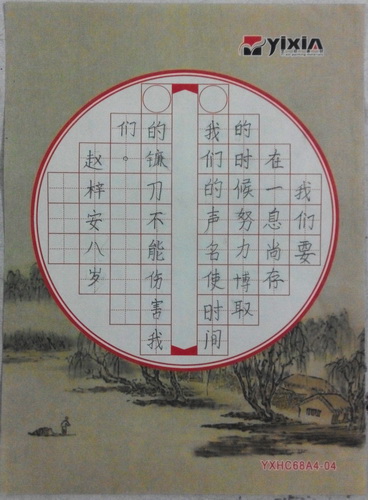 yixin
我们要
在一息尚存
的时候努力博取
我们的声名使时间
的镰刀不能伤害我
们。
赵梓安八岁
YXHC68A4.04